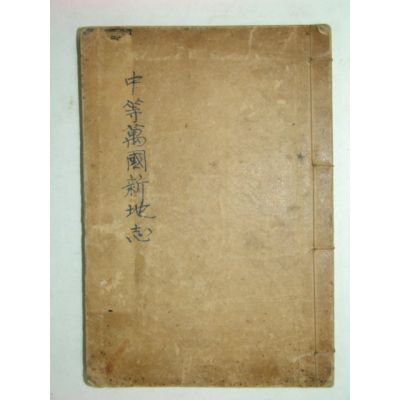 中等萬國新地志